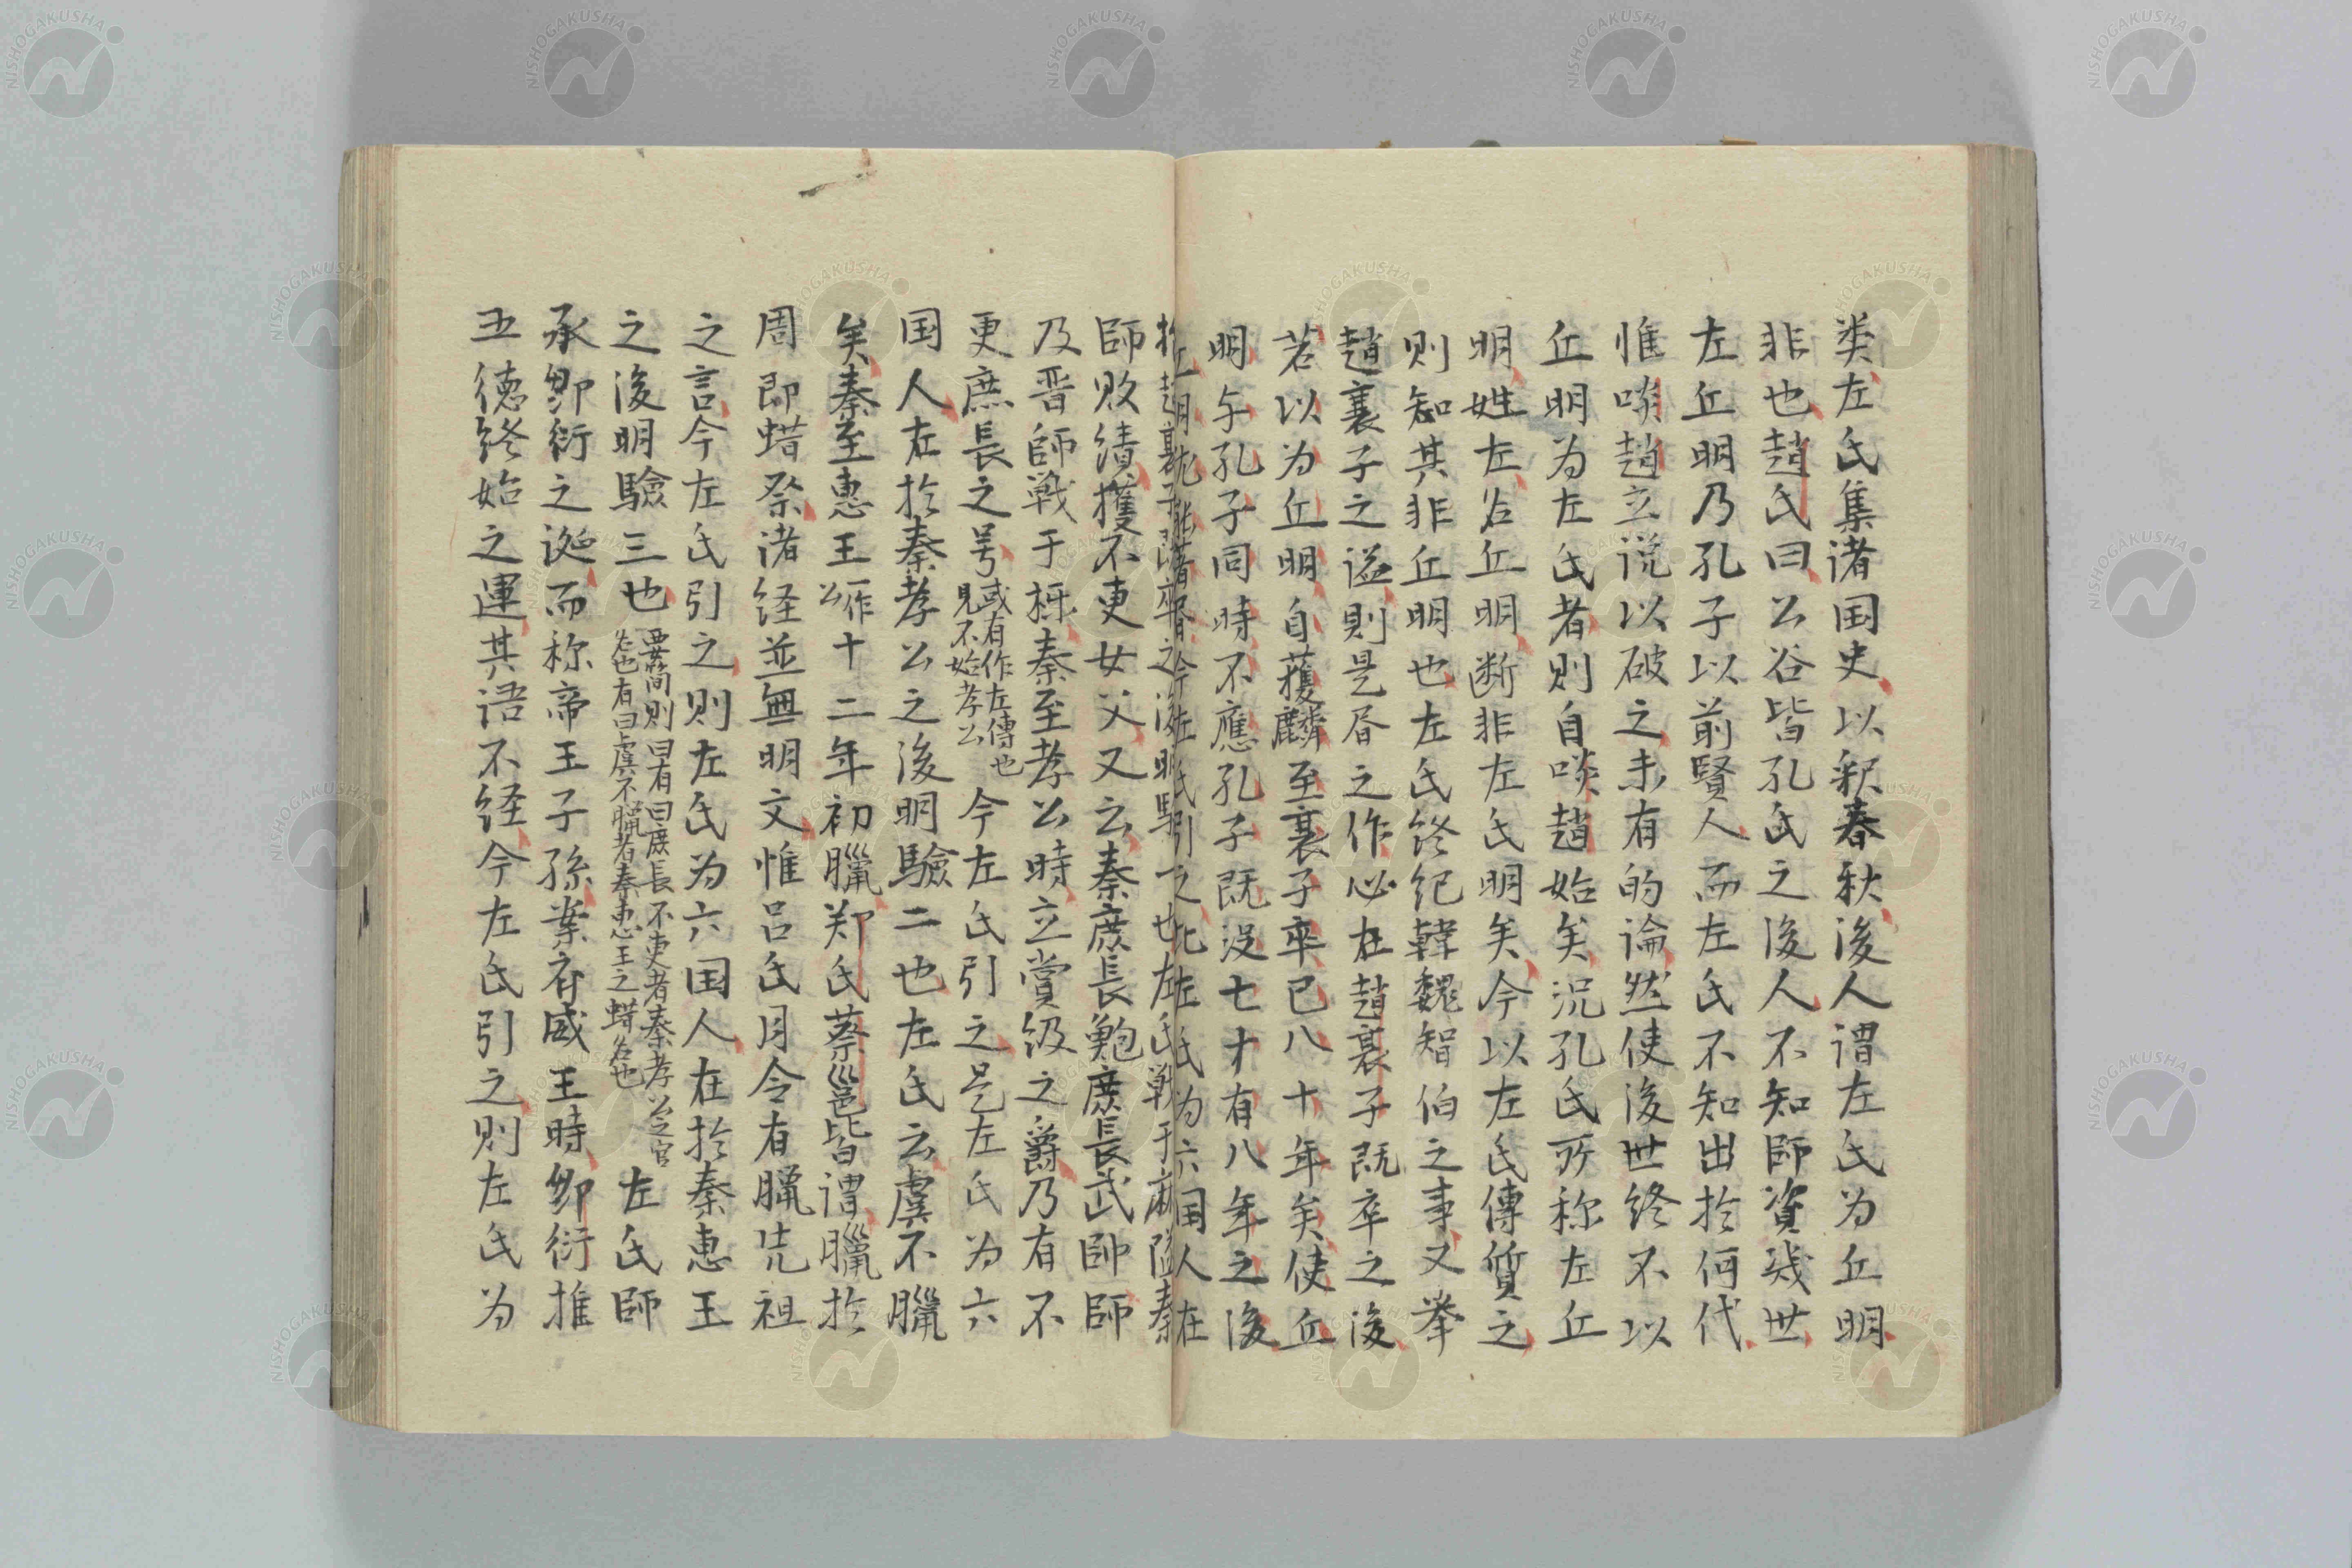 类左氏集诸国史以釈春秋後人謂左氏為丘明
非也趙氏曰公谷皆孔氏之後人不知師資幾世
左丘明乃孔子以前賢人而左氏不知出於何代
惟啖趙立説以破之未有的論然使後世終不以
丘明為左氏者則自啖趙始矣況孔氏所称左丘
明姓左名丘明断非左氏明矣今以左氏傳質之
則知其非丘明也左氏終紀韓魏智伯之事又挙
趙襄子之謚則是昏之作必在趙襄子既卒之後
若以為丘明自獲麟至襄子卒已八十年矣使丘
明与孔子同時不應孔子既没七十有八年之後
左氏為六国人在
左氏戦于麻隧秦
師敗績獲不更女父又云秦庶長鮑庶長武帥師
及晋師戦于櫟秦至孝公時立賞級之爵乃有不
更庶長之号或有作左傳也見不始孝公今左氏引之是左氏為六
国人在於秦孝公之後明驗二也左氏云虞不臘
矣秦至惠王一作公十二年初臘郑氏蔡邕皆謂臘於
周即蜡祭诸経並無明文惟呂氏月令有臘先祖
之言今左氏引之則左氏為六国人在於秦惠王
之後明驗三也要簡則曰有曰庶長不更者秦孝公之官名也有曰虞不臘者秦惠王之蜡名也左氏師
承鄒衍之誕而称帝王子孫案斉威王時鄒衍推
五徳終始之運其语不経今左氏引之則左氏為
NISHOGAKUSHA